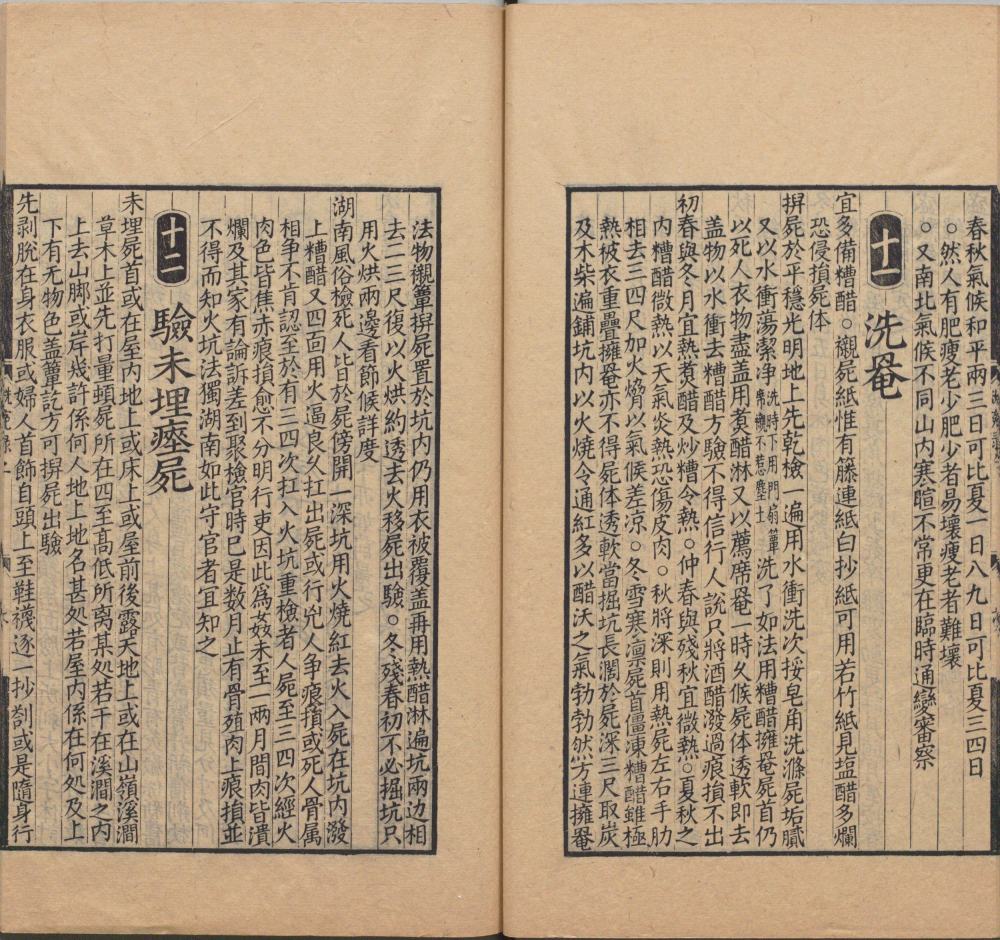 春秋氣候和平兩三日可比夏一日八九日可比夏三四日
○然人有肥瘦老少肥少者易壞瘦老者難壞
○又南北氣候不同山內寒暄不常更在臨時通變審察
十一 洗罨
宜多備糟醋○襯屍紙惟有籐連紙白抄紙可用若竹紙見塩醋多爛
恐侵損屍体
㨹屍於平穩光明地上先乾檢一遍用水衝洗次挼皂角洗滌屍垢膩
又以水衝蕩潔净洗時下用門扇簟席襯不惹塵土洗了如法用糟醋擁罨屍首仍
以死人衣物盡盖用煑醋淋又以薦席罨一時久候屍体透軟即去
盖物以水衝去糟醋方驗不得信行人說只將酒醋潑過痕損不出
初春與冬月宜熱煑醋及炒糟令熱○仲春與殘秋宜微熱○夏秋之
內糟醋微熱以天氣炎熱恐傷皮肉○秋將深則用熱屍左右手肋
相去三四尺加火熁以氣候差涼○冬雪寒凛屍首僵凍糟醋雖極
熱被衣重疊擁罨亦不得屍体透軟當掘坑長濶於屍深三尺取炭
及木柴遍鋪坑內以火燒令通紅多以醋沃之氣勃勃然方連擁罨
法物襯簟㨹屍置於坑內仍用衣被覆盖再用熱醋淋遍坑兩边相
去二三尺復以火烘約透去火移屍出驗○冬殘春初不必掘坑只
用火烘兩邊看節候詳度
湖南風俗檢死人皆於屍傍開一深坑用火燒紅去火入屍在坑內潑
上糟醋又四面用火逼良久扛出屍或行兇人争痕損或死人骨属
相争不肯認至於有三四次扛入火坑重檢者人屍至三四次經火
肉色皆焦赤痕損愈不分明行吏因此為姦未至一兩月間肉皆潰
爛及其家有論訴差到聚檢官時已是数月止有骨殖肉上痕損並
不得而知火坑法獨湖南如此守官者宜知之
十二 驗未埋瘞屍
未埋屍首或在屋內地上或床上或屋前後露天地上或在山嶺溪澗
草木上並先打量頓屍所在四至高低所离某処若干在溪澗之內
上去山脚或岸幾許係何人地上地名甚処若屋內係在何処及上
下有无物色盖簟訖方可㨹屍出驗
先剥脫在身衣服或婦人首飾自頭上至鞋襪逐一抄劄或是隨身行